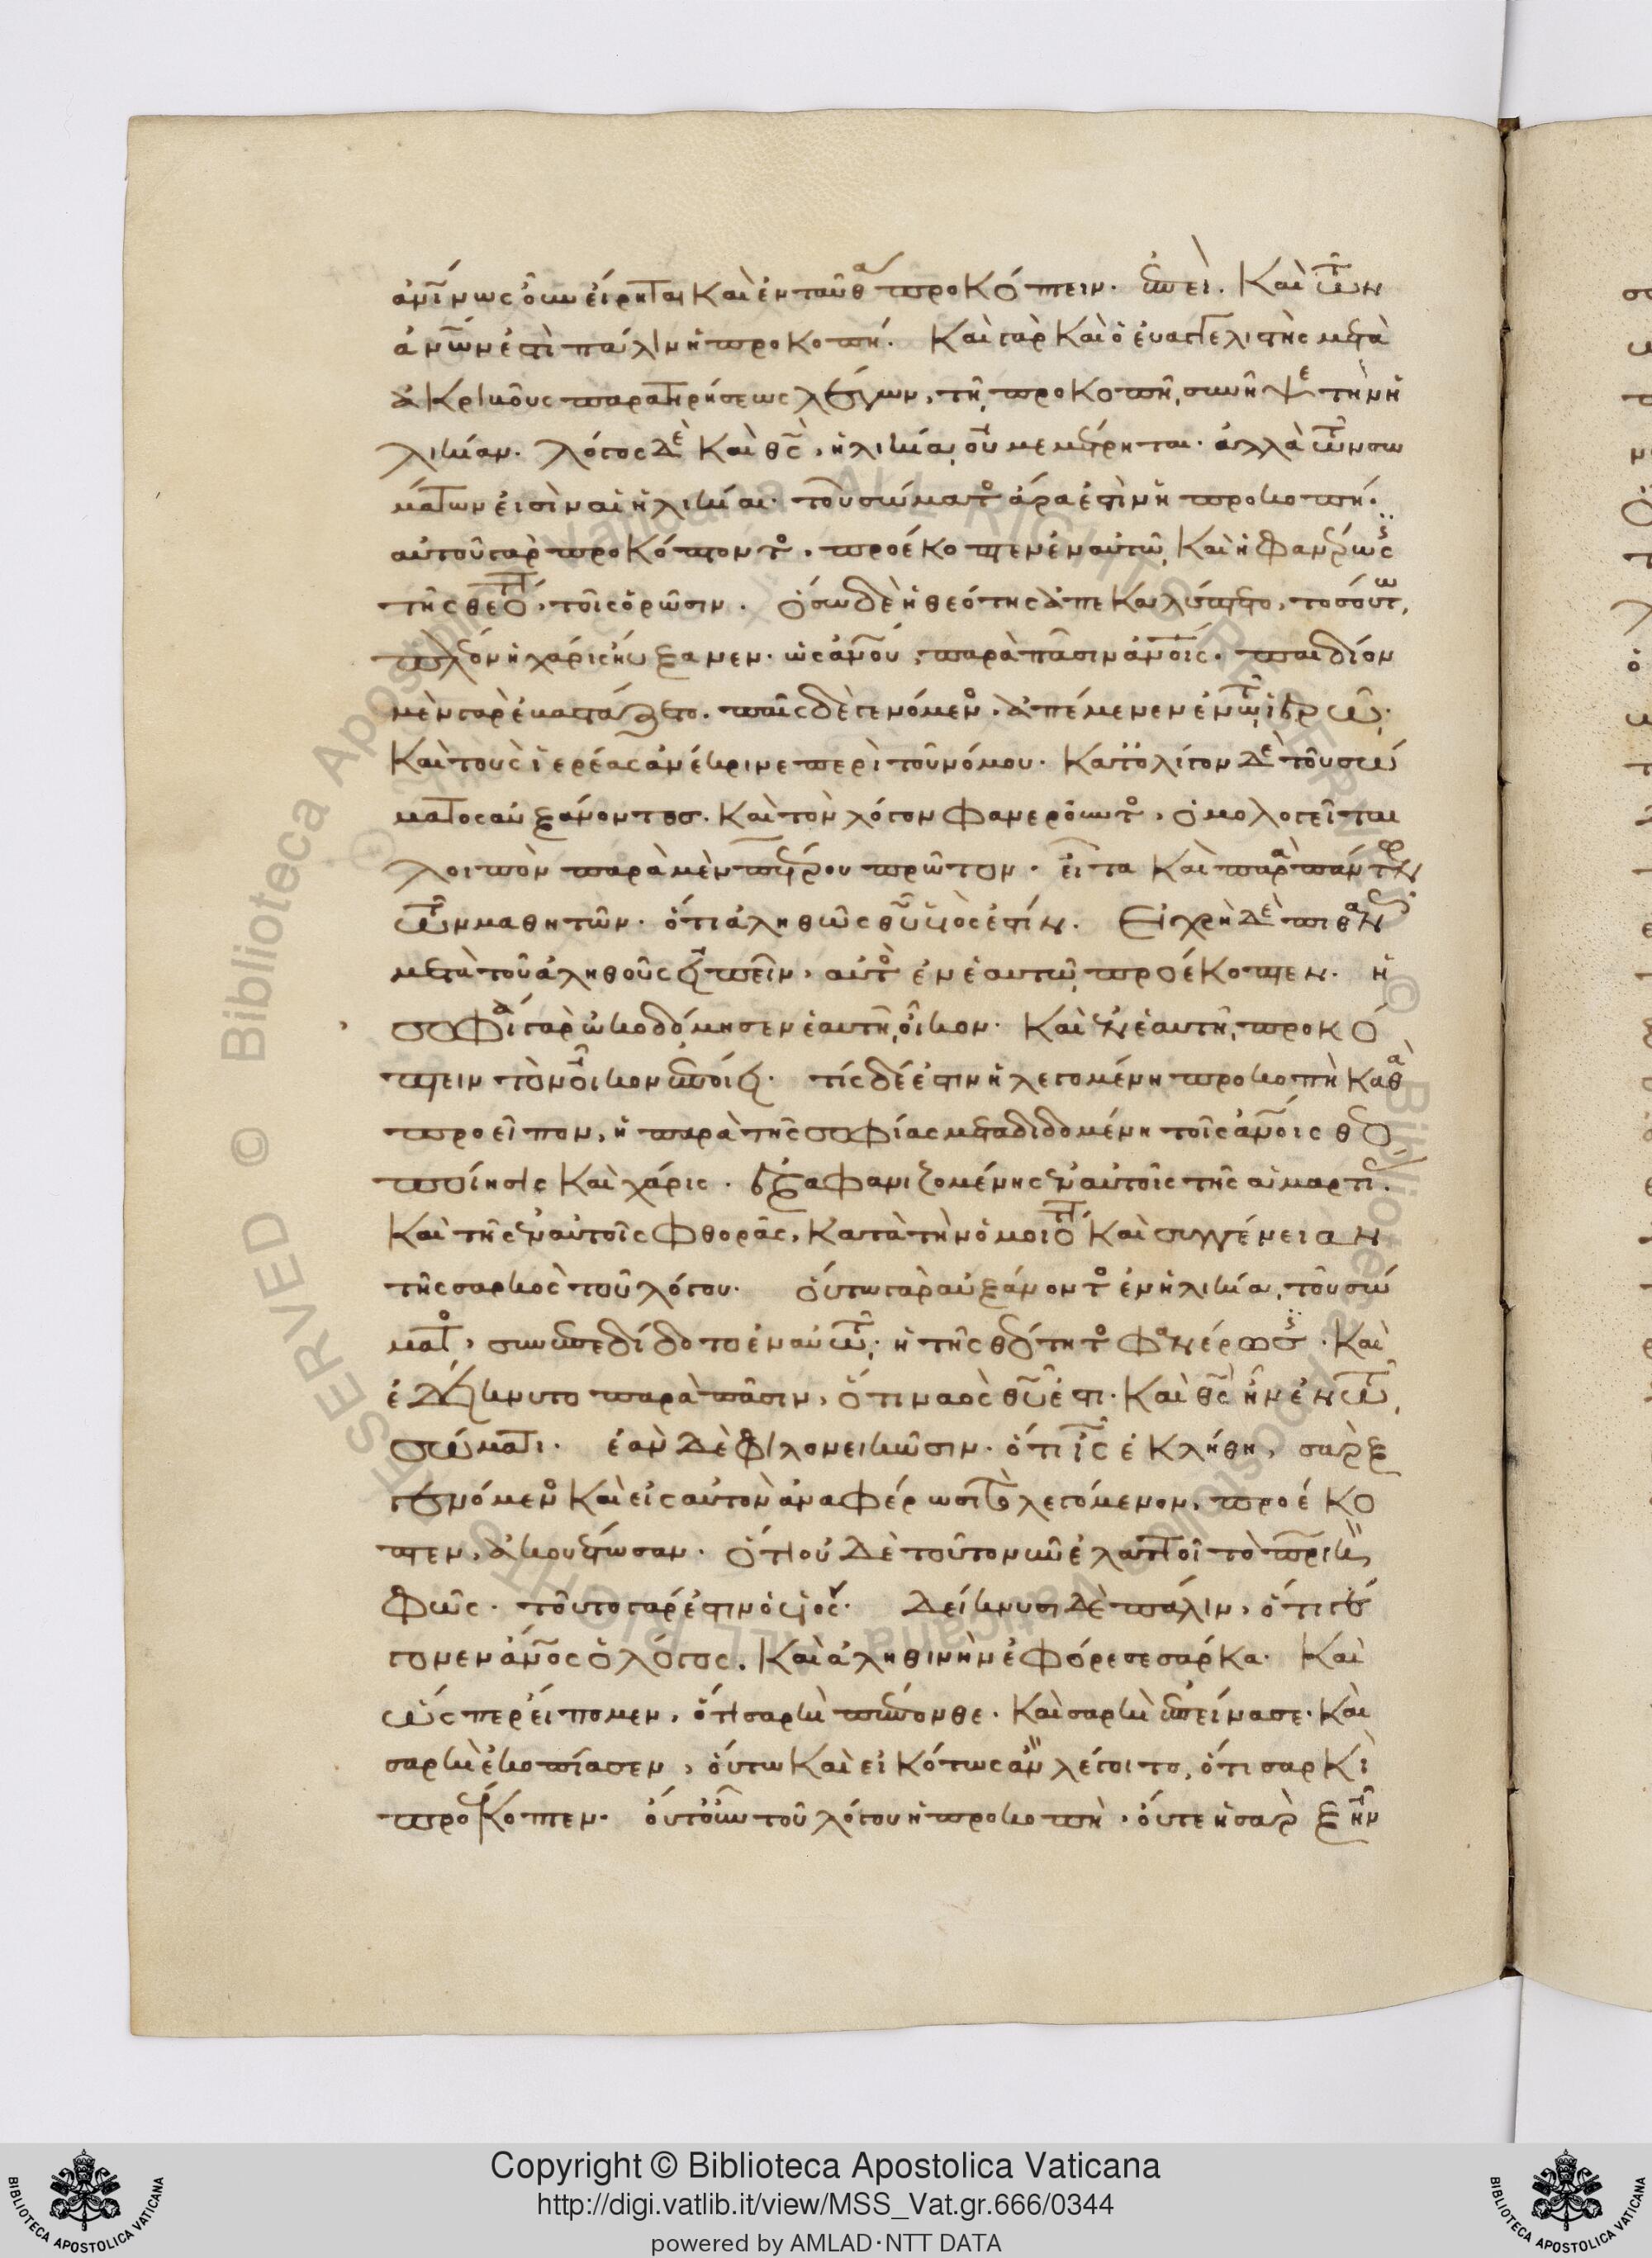 ἀνίνως οὖν εἴρηται καὶ ἐνταῦθα προκόπτειν. ἐπεὶ. καὶ τῶν
ἀνῶν ἐστὶ πάλιν ἡ προκοπή. καὶ γὰρ καὶ ὁ εὐαγγελιστὴς μετὰ
ἀκριβοῦς παρατηρήσεως λέγων, τῇ προκοπῇ συνῆψε τὴν ἡ
λικίαν. λόγος δὲ καὶ θς, ἡλικίᾳ οὐ μεμέτρηται. ἀλλὰ τῶν σω
μάτων εἰσὶν αἱ ἡλικίαι. τοῦ σώματος ἄρα ἐστὶν ἡ προκοπή.
αὐτοῦ γὰρ προκόπτοντος, προέκοπτεν ἐν αὐτῷ καὶ ἡ φανέρωσις
τῆς θεότητος, τοῖς ὁρῶσιν. ὅσω δὲ ἡ θεότης ἀπεκαλύπτετο, τοσούτω
πλεῖον ἡ χάρις ηὔξανεν. ὡς ἀνου, παρὰ πᾶσιν ἀνοις. παιδίον
μὲν γὰρ ἐβαστάζετο. παῖς δὲ γενόμενος. ἀπέμενεν ἐν τῷ ἱερῷ.
καὶ τοὺς ἱερέας ἀνέκρινε περὶ τοῦ νόμου. κατ' ὀλίγον δὲ τοῦ σώ
ματος αὐξάνοντος. καὶ τὸν λόγον φανεροῦντος, ὁμολογεῖται
λοιπὸν παρὰ μὲν πέτρου πρῶτον. εἶτα καὶ παρὰ πάντων
τῶν μαθητῶν. ὅτι ἀληθῶς θυ υἱός ἐστιν. Εἰ χρὴ δὲ πιθανῶς
μετὰ τοῦ ἀληθοῦς εἰπεῖν, αὐτὸς ἐν ἑαυτῷ προέκοπτεν. ἡ
σοφία γὰρ ᾠκοδόμησεν ἑαυτῇ οἶκον. καὶ ἐν ἑαυτῇ προκό
πτειν τὸν οἶκον ἐποίει. τίς δέ ἐστιν ἡ λεγομένη προκοπὴ καθὰ
προεῖπον, ἡ παρὰ τῆς σοφίας μεταδιδομένη τοῖς ἀνοις θεο
ποίησις καὶ χάρις. ἐξαφανιζομένης ἐν αὐτοῖς τῆς ἁμαρτίας.
καὶ τῆς ἐν αὐτοῖς φθορᾶς, κατὰ τὴν ὁμοιότητα καὶ συγγένειαν
τῆς σαρκὸς τοῦ λόγου. οὕτω γὰρ αὐξάνοντος ἐν ἡλικίᾳ τοῦ σώ
ματος, συνεπεδίδοτο ἐν αὐτῷ. ἡ τῆς θεότητος φανέρωσις. καὶ
ἐδείκνυτο παρὰ πᾶσιν, ὅτι ναὸς θυ ἐστι. καὶ θς ἦν ἐν τῷ
σώματι. ἐὰν δὲ φιλονεικῶσιν. ὅτι ις ἐκλήθη, σὰρξ
γενόμενος καὶ εἰς αὐτὸν ἀναφέρωσι τὸ λεγόμενον, προέκο
πτεν, ἀκουέτωσαν. ὅτι οὐδὲ τοῦτο μὲν ἐλαττοῖ τὸ πρικὸν
φῶς. τοῦτο γάρ ἐστιν ὁ υἱός. δείκνυσι δὲ πάλιν, ὅτι γέ
γονεν ἄνος ὁ λόγος. καὶ ἀληθινὴν ἐφόρεσε σάρκα. καὶ
ὥσπερ εἴπομεν, ὅτι σαρκὶ πέπονθε. καὶ σαρκὶ ἐπείνασε. καὶ
σαρκὶ ἐκοπίασεν, οὕτω καὶ εἰκότως ἂν λέγοιτο, ὅτι σαρκὶ
προέκοπτεν. οὔτε οὖν τοῦ λόγου ἡ προκοπὴ. οὔτε ἡ σὰρξ ἦν
Copyright © Biblioteca Apostolica Vaticana
http://digi.vatlib.it/view/MSS_Vat.gr.666/0344
powered by AMLAD·NTT DATA